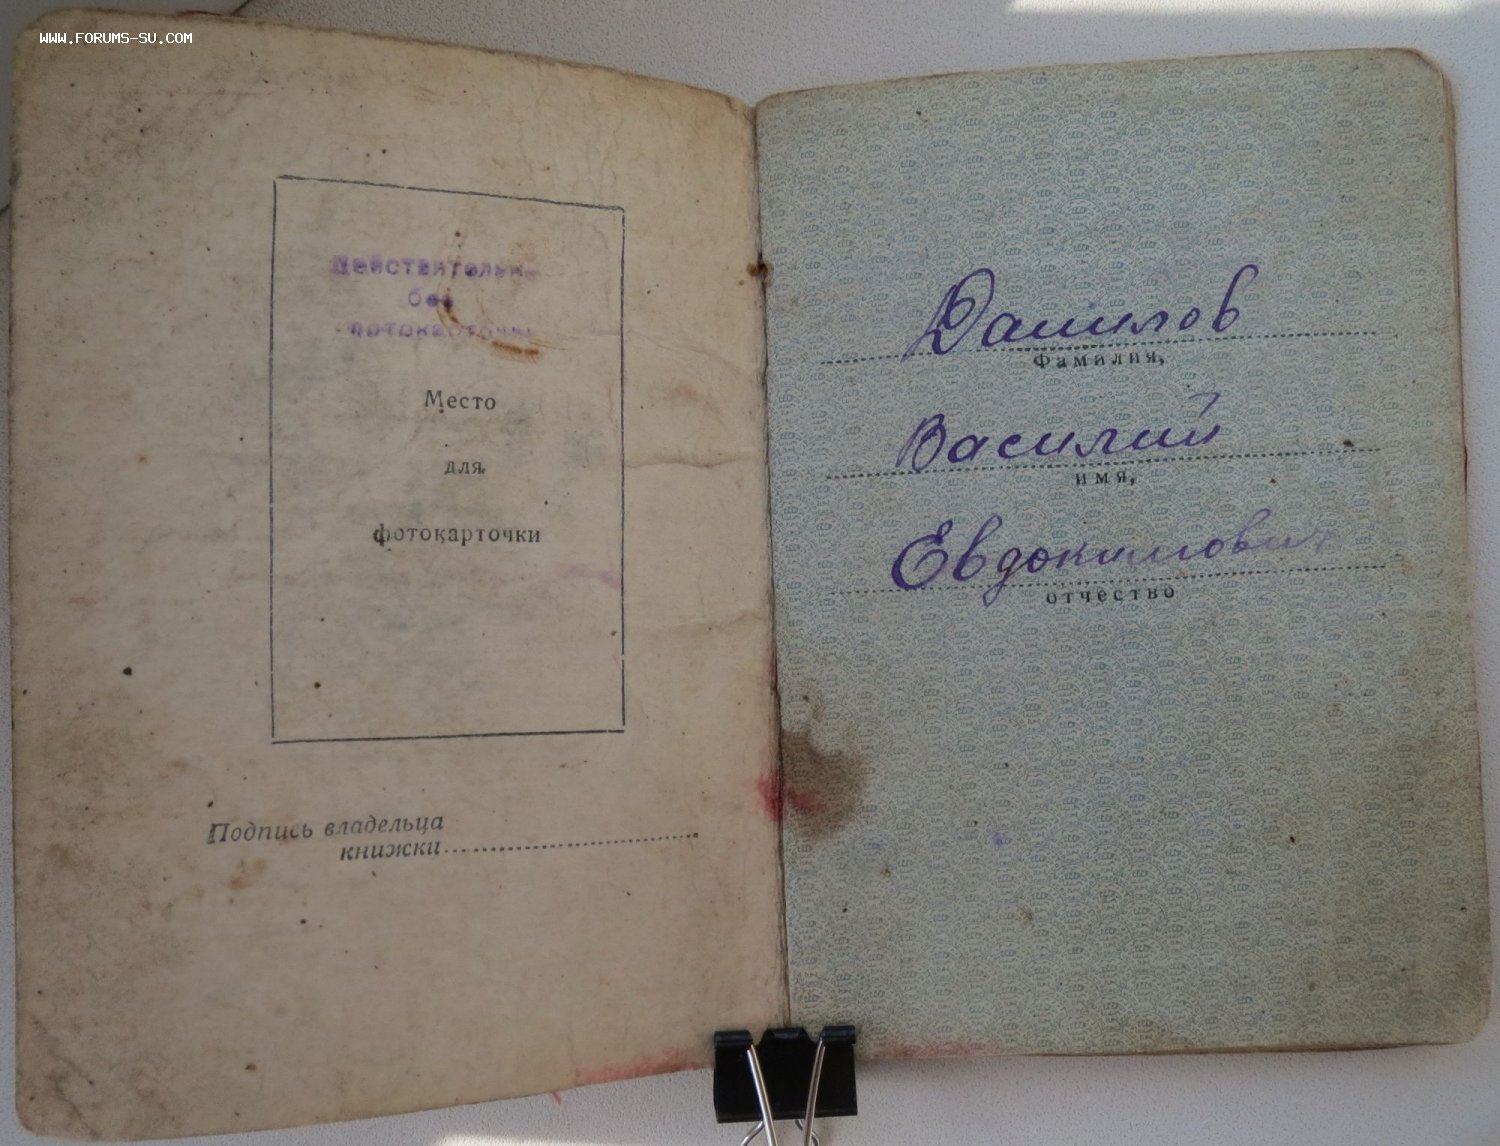 WWW.FORUMS-SU.COM
Действительна
без
фотокарточки
Место
для
фотокарточки
Подпись владельца
книжки
Данилов
Фамилия,
Василий
имя,
Евдокимович
отчество